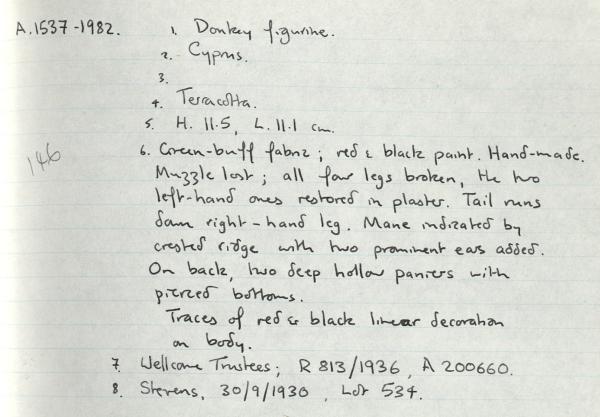 A.1537-1982. 1. Donkey figurine.
2. Cyprus.
3.
4. Terracotta.
5. H. 11.5, L. 11.1 cm.
146
6. Green-buff fabric; red & black paint. Hand-made.
Muzzle lost; all four legs broken, the two
left-hand ones restored in plaster. Tail runs
down right-hand leg. Mane indicated by
crested ridge with two prominent ears added.
On back, two deep hollow paniers with
pierced bottoms.
Traces of red & black linear decoration
on body.
7. Wellcome Trustees; R 813/1936, A 200660.
8. Stevens, 30/9/1930, Lot 534.